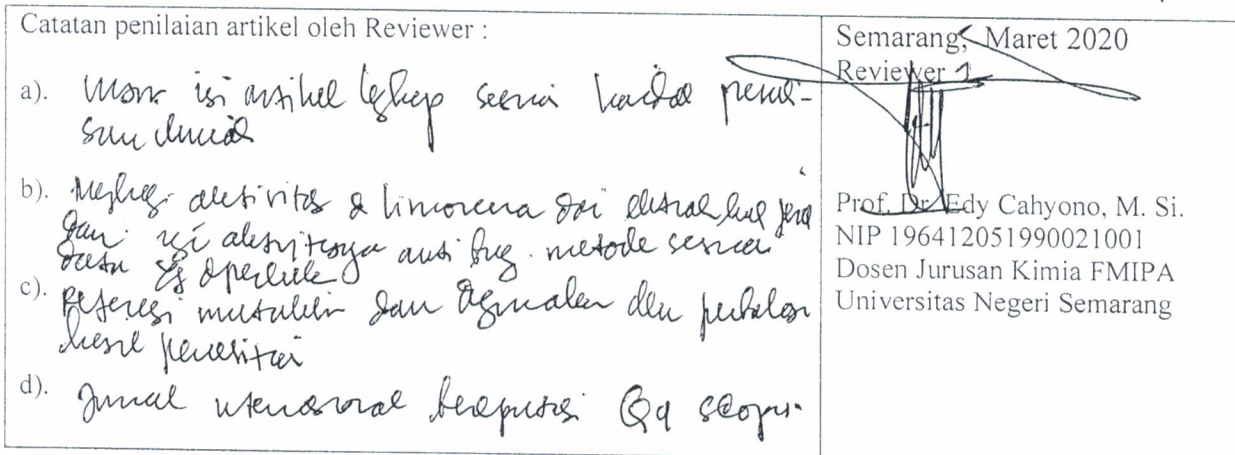 Catatan penilaian artikel oleh Reviewer :
a). isi artikel lengkap sesuai kaidah penuli-
san ilmiah
b). aktivitas d limonena dari
dan uji aktivitasnya anti metode sesuai
data yg diperoleh
c). Referensi mutakhir dan digunakan dlm
hasil penelitian
d). Jurnal internasional bereputasi Q4 scopus.
Semarang, Maret 2020
Reviewer 1
Prof. Dr. Edy Cahyono, M. Si.
NIP 196412051990021001
Dosen Jurusan Kimia FMIPA
Universitas Negeri Semarang